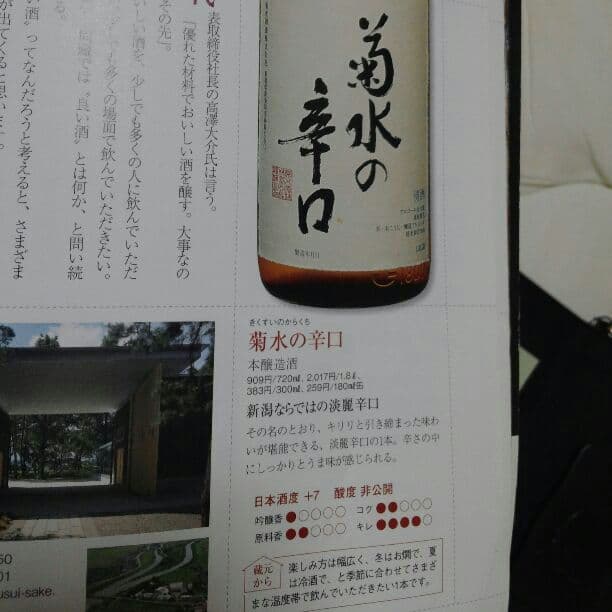 表取締役社長の髙澤大介氏は言う。
『優れた材料でおいしい酒を醸す。大事なの
その先』。
おいしい酒を、少しでも多くの人に飲んでいただ
でも多くの場面で飲んでいただきたい。
では〝良い酒〟とは何か、と問い続
い酒〟ってなんだろうと考えると、さまざま
が出てくると思います。
菊水の
辛口
清酒
製造年月日
きくすいのからくち
菊水の辛口
本醸造酒
909円/720㎖、2,017円/1.8ℓ、
383円/300㎖、259円/180㎖缶
新潟ならではの淡麗辛口
その名のとおり、キリリと引き締まった味わ
いが堪能できる、淡麗辛口の1本。辛さの中
にしっかりとうま味が感じられる。
日本酒度 +7 酸度 非公開
吟醸香 ●○○○○ コク ●●○○○
原料香 ●●○○○ キレ ●●●●○
蔵元から
楽しみ方は幅広く、冬はお燗で、夏
は冷酒で、と季節に合わせてさまざ
まな温度帯で飲んでいただきたい1本です。
50
01
usui-sake.